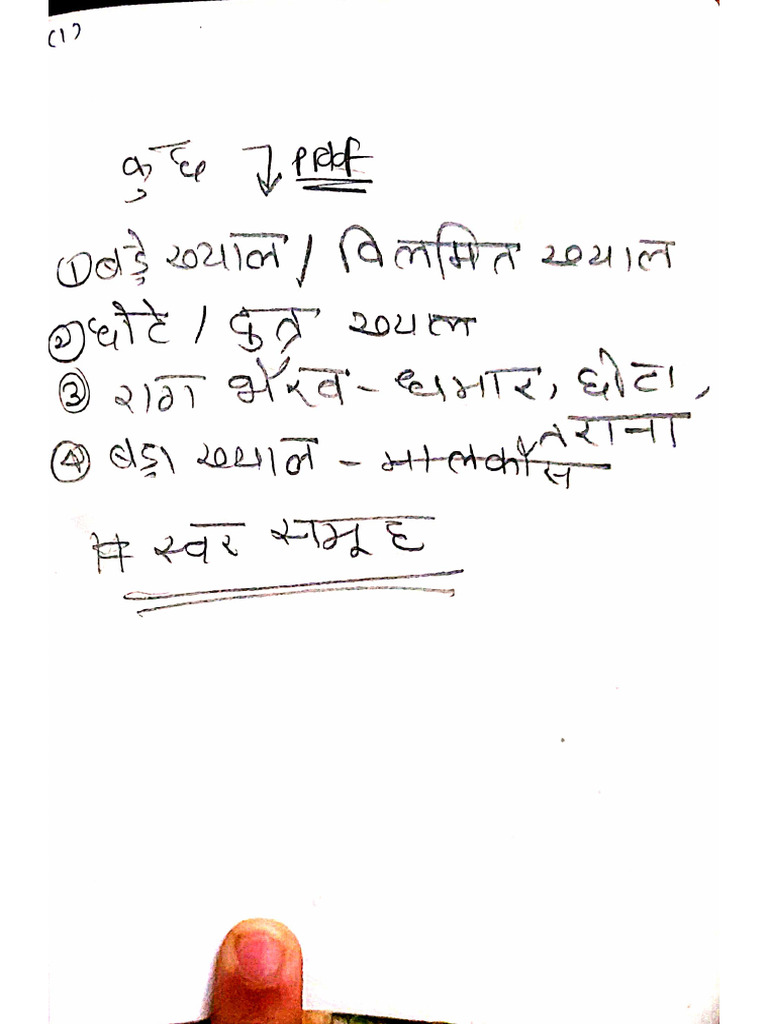 (1)
कुछ ↓ PDF
① बड़े ख्याल / विलमित ख्याल
② छोटे / द्रुत ख्याल
③ राग भैरव - धमार, छोटा,
तराना
④ बड़ा ख्याल - मालकौंस
# स्वर समूह